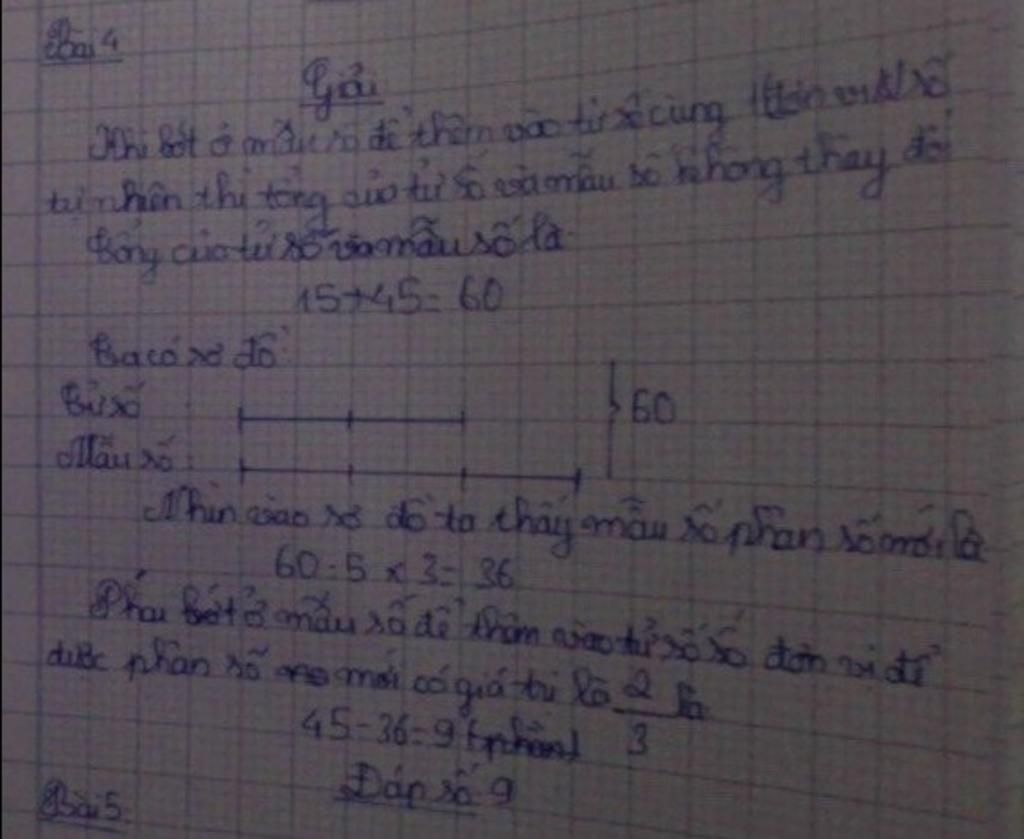 Bài 4
Giải
Khi bớt ở mẫu số để thêm vào tử số cùng số
tự nhiên thì tổng của tử số và mẫu số không thay đổi
Tổng của tử số và mẫu số là
15+45=60
Ta có sơ đồ
Tử số
60
Mẫu số:
Nhìn vào sơ đồ ta thấy mẫu số phân số mới là
60:5 x 3= 36
Phải bớt ở mẫu số để thêm vào tử số số đơn vị để
được phân số mới có giá trị là 2/3 là
45-36=9
Đáp số 9
Bài 5